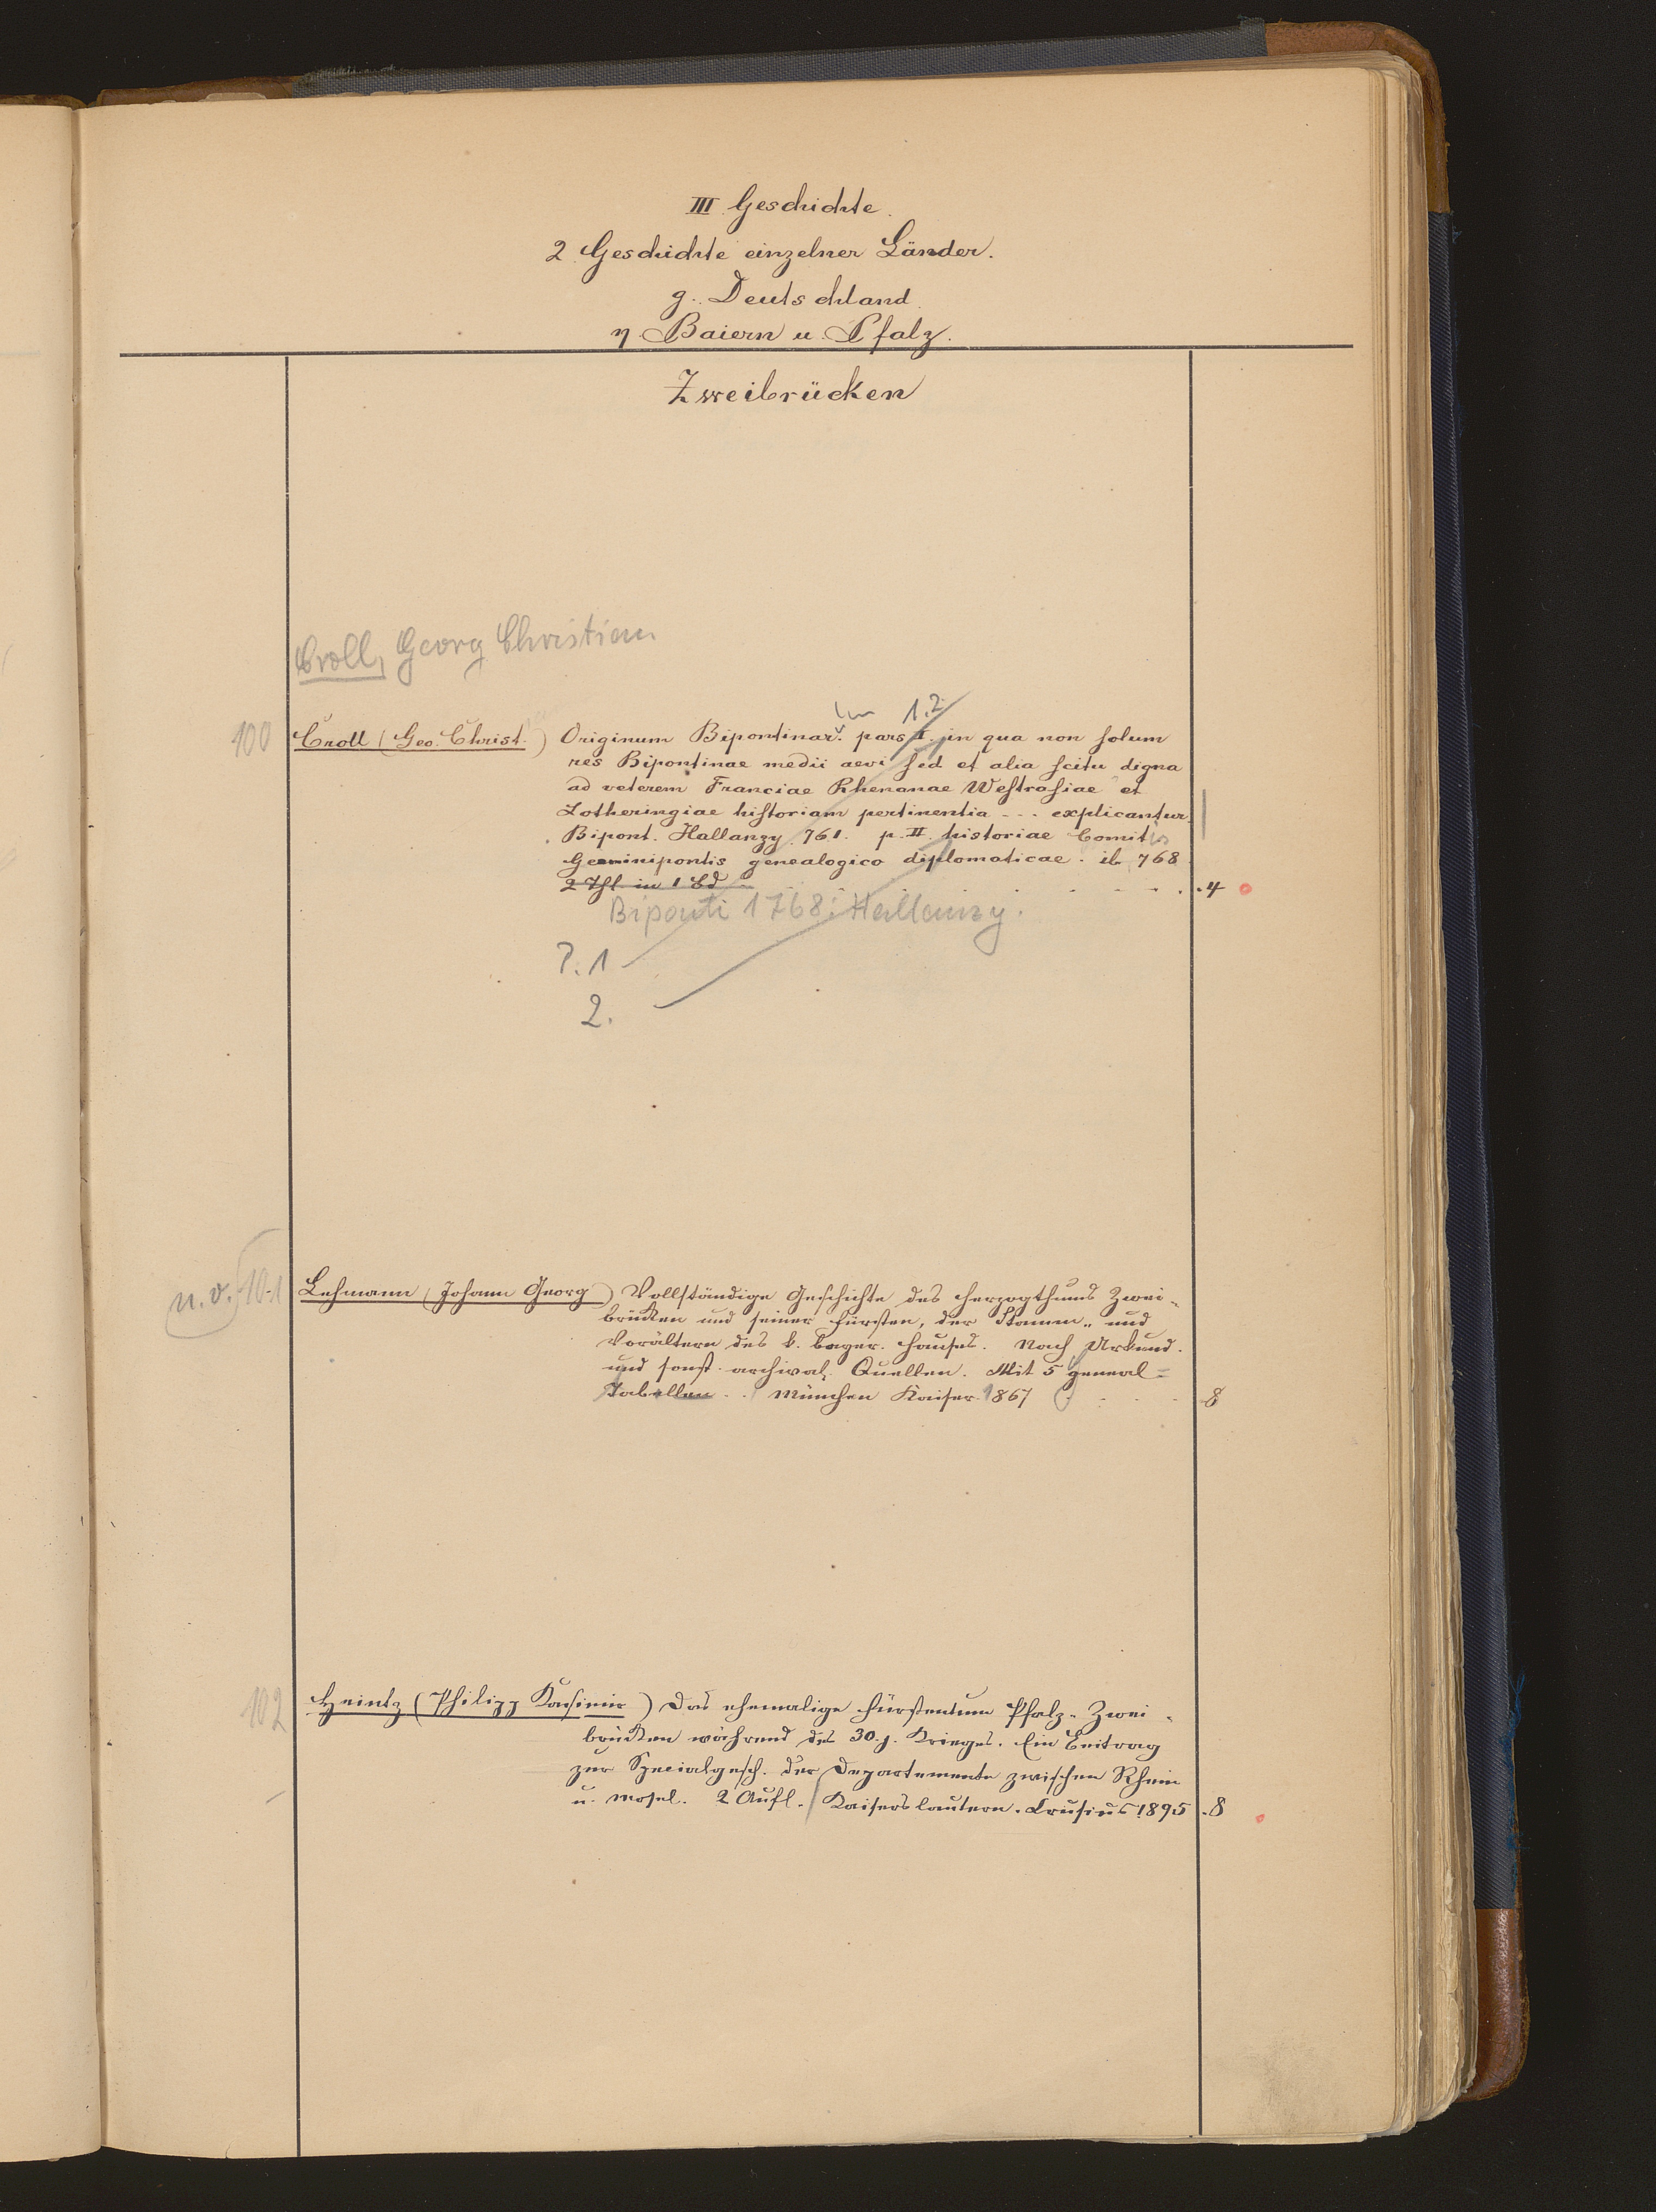 III Geschichte.
2 Geschichte einzelner Länder.
g. Deutschland.
η Baiern u. Pfalz.
Zweibrücken
Croll, Georg Christian
1.2
100 Croll (Geo. Christ.) Originum Bipontinar. pars I. in qua non solum
res Bipontinae medii aevi sed et alia scitu digna
ad veterem Franciae Rhenanae Westrasiae et
Lotheringiae historiam pertinentia - - - explicantur.
Bipont. Hallanzy 761. p. II. historiae Comitis
Geminipontis genealogico diplomaticae. ib 768
2 Thl. in 1 Bd . . . 4
Biponti 1768: Hallanzy.
P. 1
2.
n. v. 101 Lehmann (Johann Georg) Vollständige Geschichte des Herzogthums Zwei-
brücken und seiner Fürsten, der Stamm- und
Vorältern des k. bayer. Hauses. Nach Urkund.
und sonst. archival. Quellen. Mit 5 geneal=
Tabellen . . München Kaiser 1867 - - - 8
102 Heintz (Philipp Kasimir) Das ehemalige Fürstentum Pfalz-Zwei-
brücken während des 30.j. Krieges. Ein Beitrag
zur Spezialgesch. der Departemente zwischen Rhein
u. Mosel. 2 Aufl. Kaiserslautern. Crusius 1895 . 8